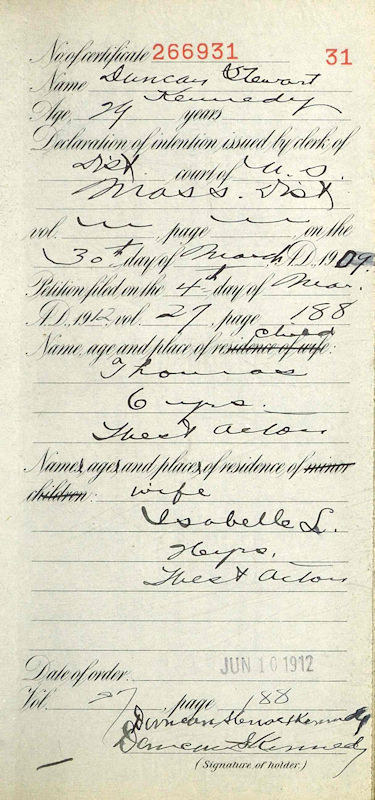 No. of certificate 266931 31
Name Duncan Stewart
Kennedy
Age, 29 years
Declaration of intention issued by clerk of
Dist. court of U.S.
Mass. Dist
vol. , page , on the
30th day of March, A.D. 1909.
Petition filed on the 4th day of Mar.
A.D. 1912, vol. 27, page 188
child
Name, age and place of residence of wife:
Thomas
6 yrs.
West Acton
Names, ages, and places of residence of minor
children: wife
Isabelle L.
yrs.
West Acton
Date of order. JUN 10 1912
Vol. 27, page 188
Duncan Stewart Kennedy
Duncan S Kennedy
(Signature of holder.)